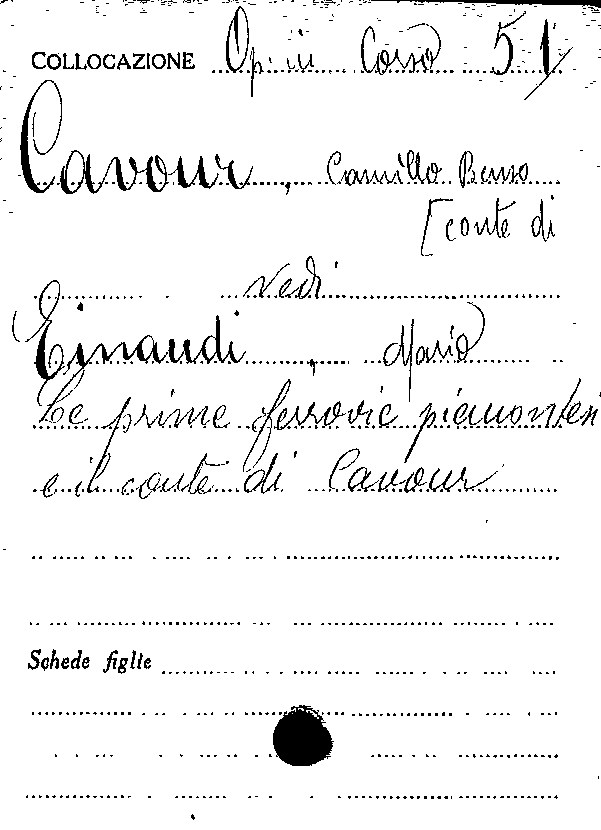 COLLOCAZIONE Op. in Corso 51
Cavour, Camillo Benso
[conte di
vedi
Einaudi, Mario
Le prime ferrovie piemontesi
e il conte di Cavour
Schede figlie